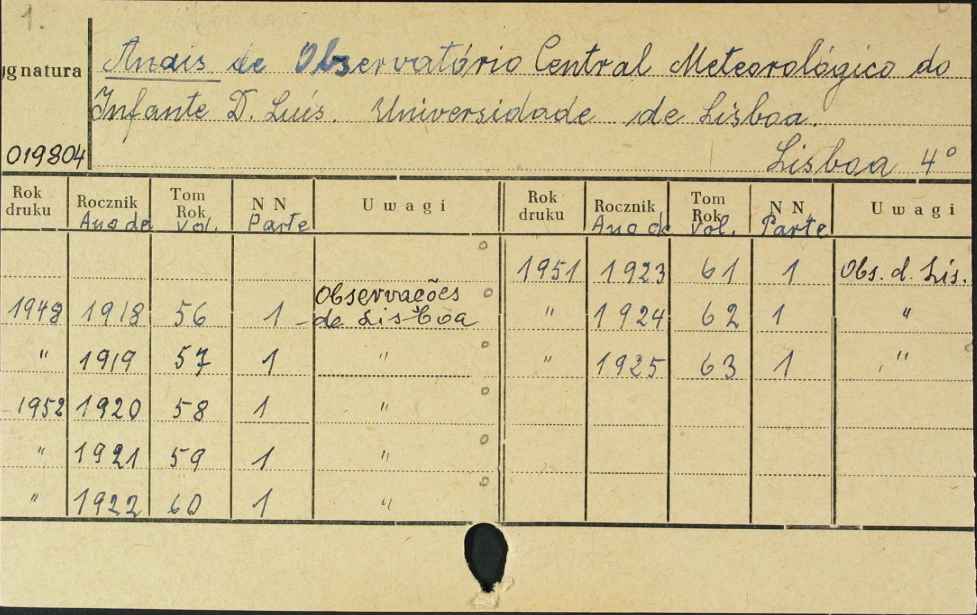 1.
gnatura
Anais de Observatório Central Meteorológico do
Infante D. Luís. Universidade de Lisboa.
019804
Lisboa 4°
Rok druku | Rocznik | Tom Rok | N N | Uwagi | Rok druku | Rocznik | Tom Rok | N N | Uwagi
Ano de | Vol. | Parte | Ano de | Vol. | Parte
1951 | 1923 | 61 | 1 | Obs. d. Lis.
1948 | 1918 | 56 | 1 | Observações de Lisboa | " | 1924 | 62 | 1 | "
" | 1919 | 57 | 1 | " | " | 1925 | 63 | 1 | "
1952 | 1920 | 58 | 1 | "
" | 1921 | 59 | 1 | "
" | 1922 | 60 | 1 | "